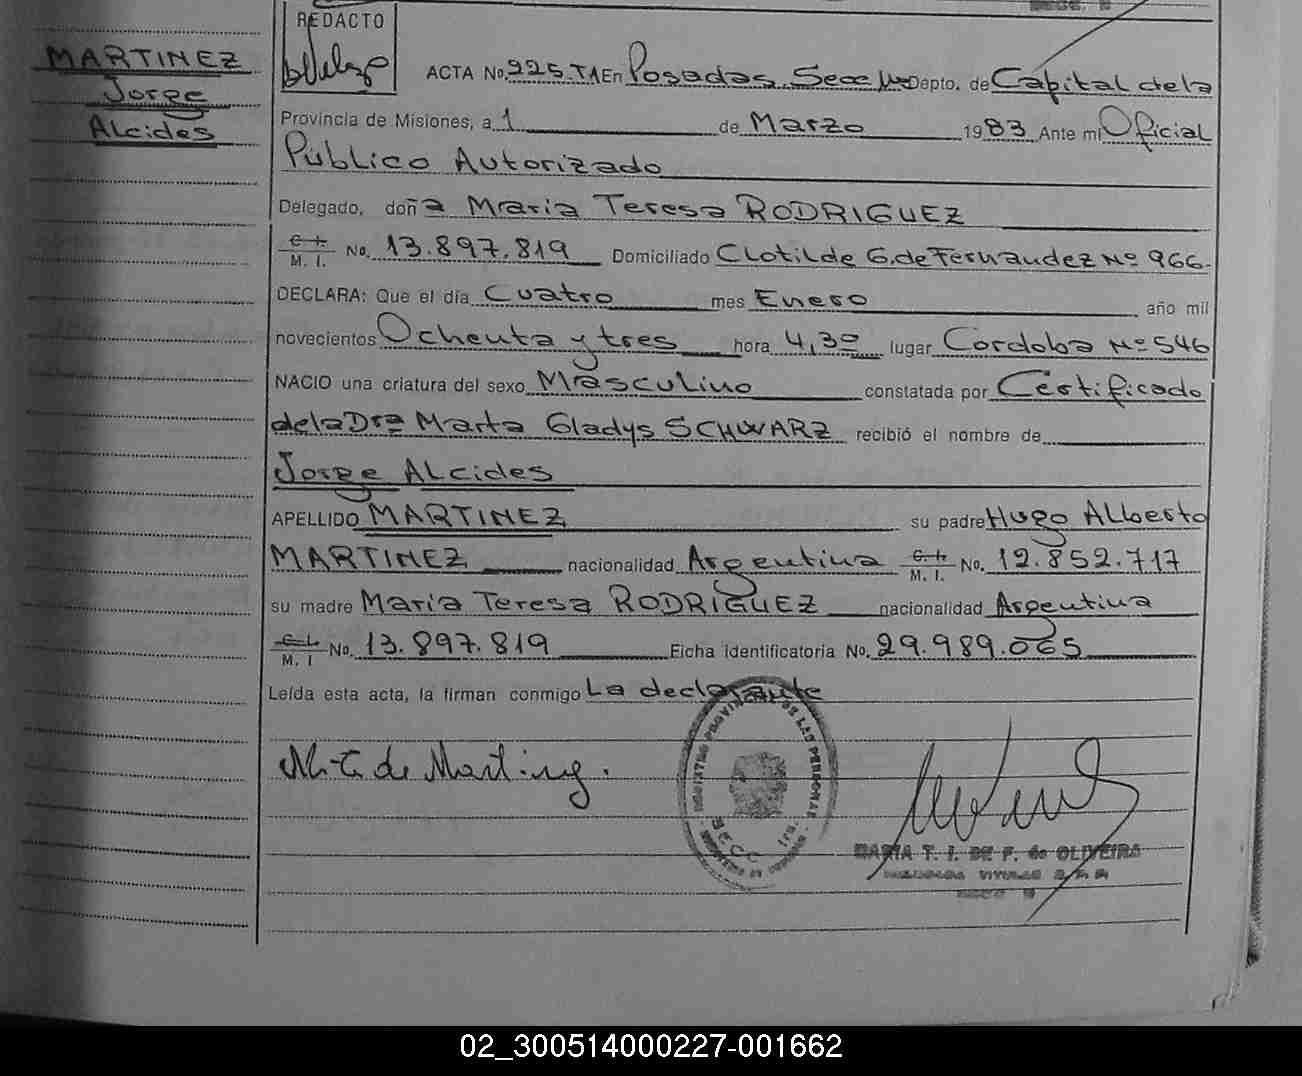 REDACTO
MARTINEZ
Jorge
Alcides
ACTA No. 225.T1 En Posadas, Secc Depto. de Capital de la
Provincia de Misiones, a 1 de Marzo 1983 Ante mi Oficial
Público Autorizado
Delegado, doña Maria Teresa RODRIGUEZ
C. I.
M. I. No. 13.897.819 Domiciliado Clotilde G. de Fernandez Nº 966.
DECLARA: Que el día Cuatro mes Enero año mil
novecientos Ochenta y tres hora 4,30 lugar Cordoba Nº 546
NACIO una criatura del sexo Masculino constatada por Certificado
de la Dra Marta Gladys SCHWARZ recibió el nombre de
Jorge Alcides
APELLIDO MARTINEZ su padre Hugo Alberto
MARTINEZ nacionalidad Argentina C. I. M. I. No. 12.852.717
su madre Maria Teresa RODRIGUEZ nacionalidad Argentina
C. I.
M. I No. 13.897.819 Ficha identificatoria No. 29.989.065
Leída esta acta, la firman conmigo La declarante
M. T. de Martinez.
REGISTRO PROVINCIAL DE LAS PERSONAS
SECC
MARIA T. I. DE F. de OLIVEIRA
TITULAR
02_300514000227-001662